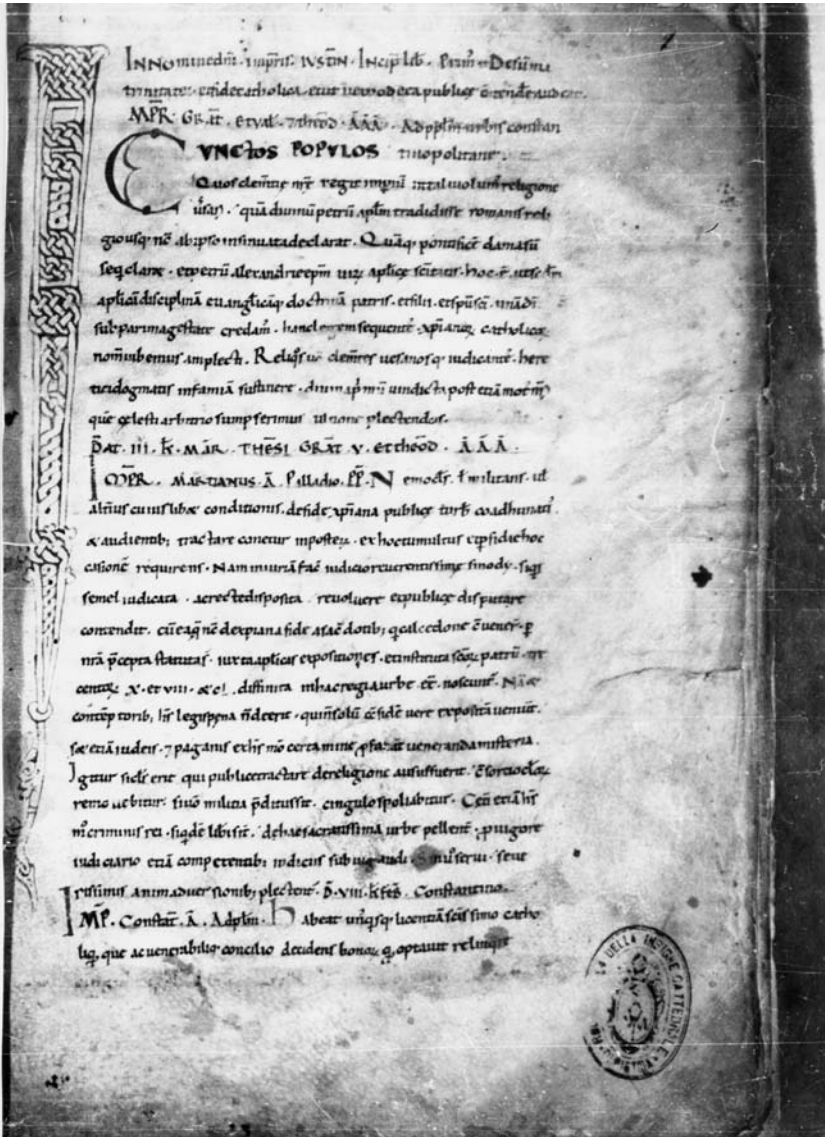 INNomine dn̄i imp̄ris IVSTIN Incip lib Prim De sum̄a
trinitate et fide catholica et ut nemo de ea publicę c̄tendere audeat
IMP̄R GRAT̄ et val ⁊ theod ĀĀĀ Ad pplm̄ urbis constan
CVNCTOS POPVLOS tinopolitane
Quos clem̄tię nr̄ę regit imp̄iū in tali uolum̄ religione
ūsari quā diuinū petrū aplm̄ tradidisse romanis reli
gio usq nc̄ ab ipso insinuata declarat Quāq pontificē damasū
seq clar et petrū alexandrię ep̄m aplicę sc̄itatis hoc ē ut scd̄m
aplicā disciplinā euanglicāq doctrinā patris et filii et sp̄us sc̄i unā dī
sub pari magestate credam̄ hanc legem sequentē xp̄ianoꝝ catholicoꝝ
nom̄ iubemus amplecti Reliqͦs uͦ dementes uesanosq iudicantē here
tici dogmatis infamiā sustinere diuina p̄mū uindicta post etiā
que cęlesti arbitrio sumpserimus ultione plectendos
D̄AT III K̄ MĀR THESI GRĀT V et theōd Ā Ā Ā
IMP̄R MARTIANUS Ā Palladio P̄P̄ Nemo cler̄ ł militans ul
alt̄ius cuius libet conditionis de fide xp̄iana publicę turb̄ coadhunati
et audientib; tractare conetur in posteꝝ ex hoc tumultus et p̄fidię hoc
casionē requirens Nam iniuriā fac̄ iudicio reuerentissimę sinody siqͥs
semel iudicata ac recte disposita reuoluere et publicę disputare
contendit cū ea q̄ nc̄ de xp̄iana fide a sacdotib; q calcedone 
nr̄a p̄cepta statuta s̄ iuxta aplicas expositiones et instituta sc̄oꝝ patrū tre
centoꝝ X et VIII et cl diffinita in hac regia urbe ē̄ noscunt̄ Nā et
contēptorib; hͥ legis pęna n̄ deerit quia n̄ solū c̄ fidē uere expositā ueniut̄
set etiā iudeis ⁊ paganis ex hͥ mͦ certamine p̄fanat̄ ueneranda misteria
Igitur si cler̄ erit qui publice tractare de religione ausus fuerit c̄sortio cler̄
remouebitur si uͦ militia p̄ditus sit cingulo spoliabitur Cet̄i etiā hͥ
mͦ criminis rei siq̄dē lib̄i sit de hac sacratissima urbe pellent̄ p uigore
iudiciario etiā competentib; iudiciis subiugandi Si uͦ serui seue
rissimis animaduersionib; plectent̄ D̄ VIII k̄ feb̄ Constantino
IMP̄ Constat̄ Ā Ad plm̄ Habeat unꝰqsq licentiā sc̄issimo catho
liq que ac uenerabiliq concilio decidens bonoꝝ q optauit relinqͥre
LA DELLA INSIGNE CATTEDRALE